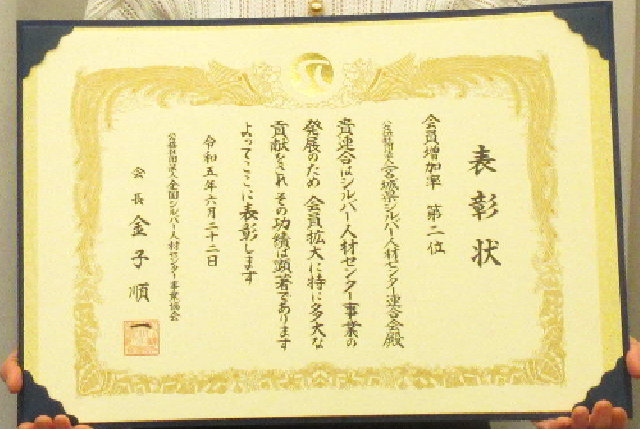 表彰状
会員増加率　第二位
公益社団法人宮城県シルバー人材センター連合会殿
貴連合はシルバー人材センター事業の
発展のため 会員拡大に特に多大な
貢献をされ その功績は顕著であります
よってここに表彰します
令和五年六月二十二日
公益社団法人全国シルバー人材センター事業協会
会長 金子順一